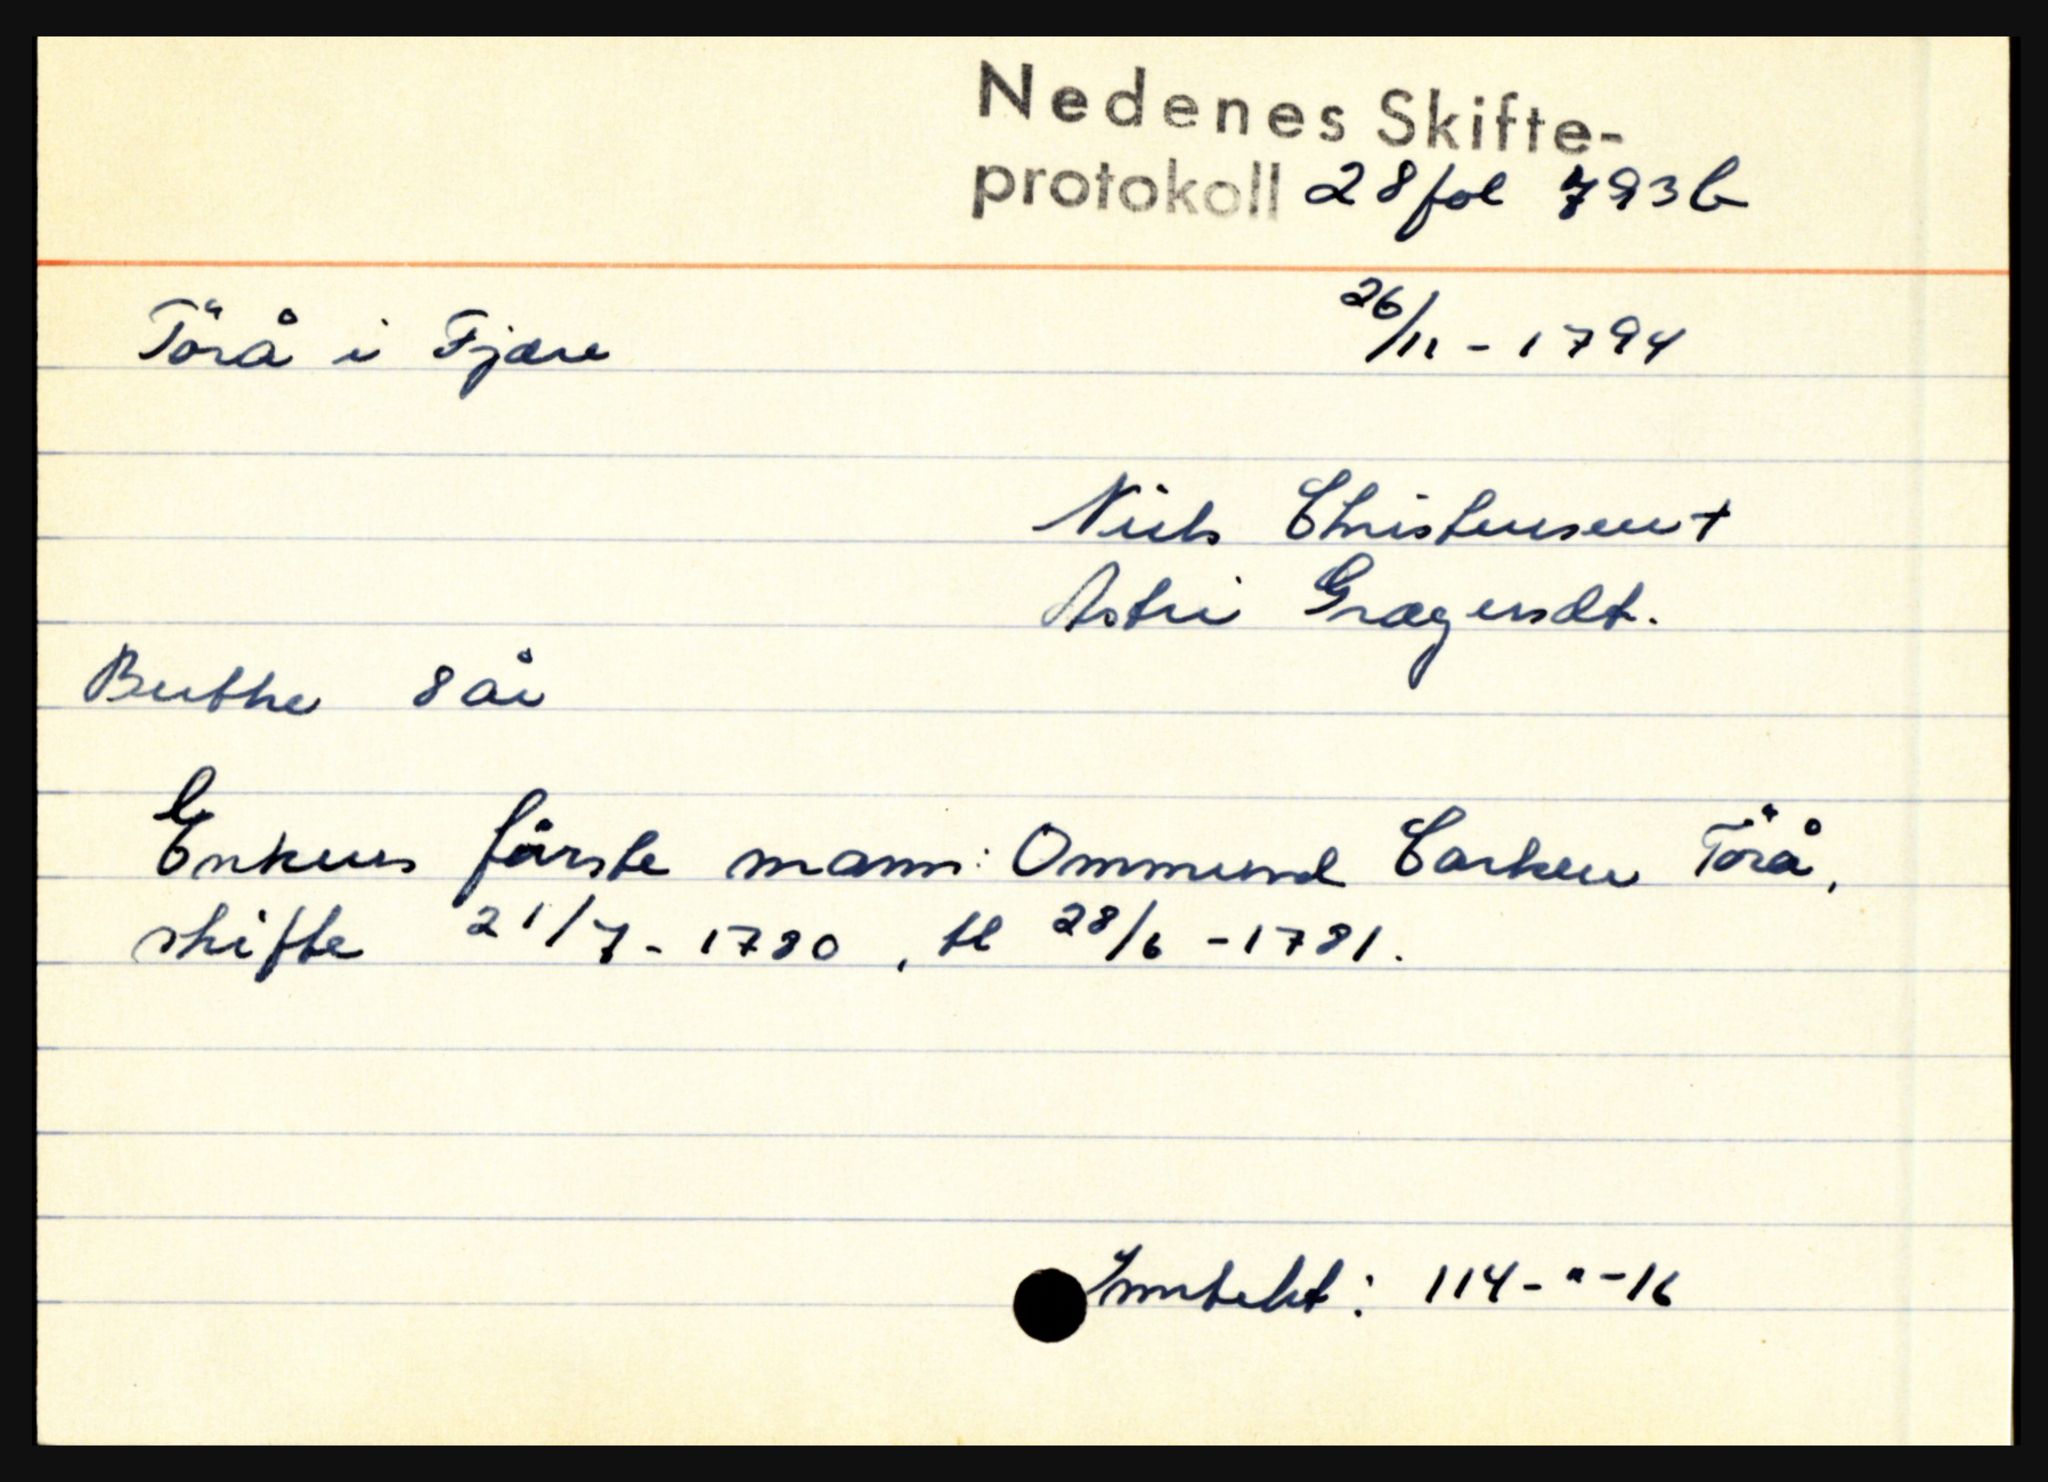 Nedenes Skifte-
protokoll 28 fol 793b
Törå i Fjære 26/11 - 1794
Niels Christensen +
Astri Gragersdt.
Berthe 8 år
Enkens første mann: Ommund Carlsen Törå,
skifte 21/7 - 1780, til 28/6 - 1781.
Inntekt: 114 - " - 16